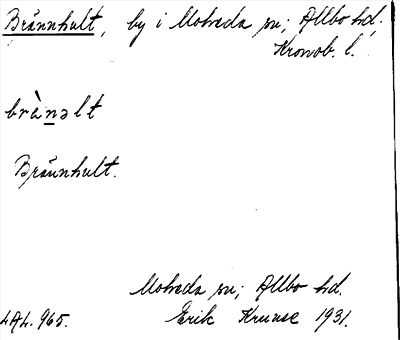 Brännhult, by i Moheda sn; Allbo hd.
Kronob. l.
brànəlt
Brännhult.
Moheda sn; Allbo hd.
LAL. 965. Erik Kruuse 1931.